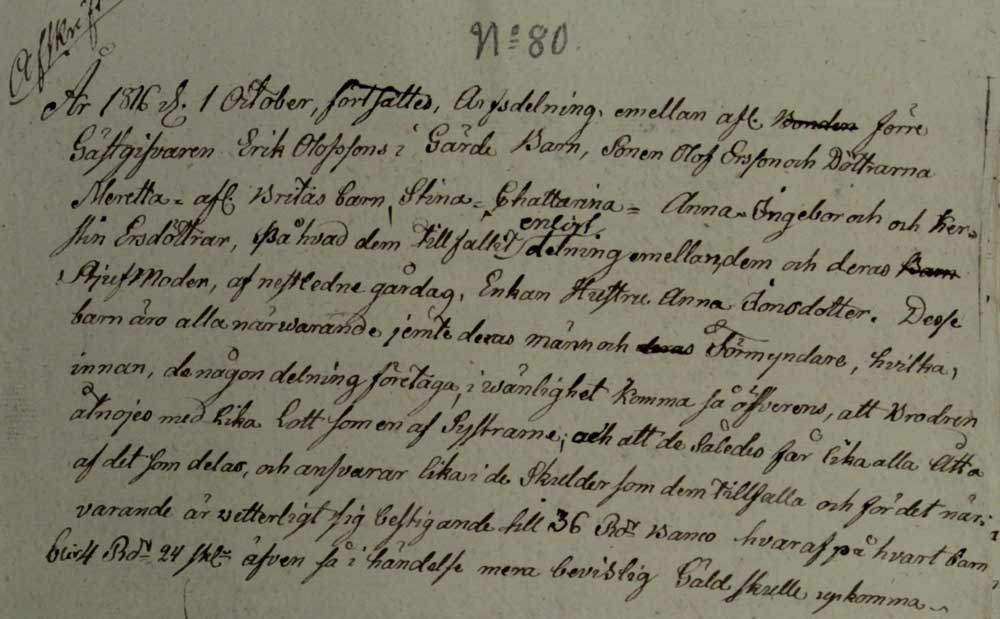 Afskrift
N:o 80.
År 1816 d. 1 October, fortsattes, Arfsdelning, emellan afl. Bonden förre
Gästgifvaren Erik Olofssons i Gärde Barn, Sonen Olof Ersson och Döttrarna
Meretta = afl. Britas barn, Stina = Chattarina = Anna = Ingebor och och Ker=
stin Ersdöttrar, på hvad dem tillfallit enligt delning emellan dem och deras Barn
Stjuf Moder, af nestledne gårdag, Enkan Hustru Anna Jonsdotter. Desse
barn äro alla närwarande jemte deras männ och deras Förmyndare, hvilka,
innan, de någon delning företaga, i wänlighet komma så öfverens, att Brodren
åtnöjes med Lika Lott som en af Systrarne, och att de således får lika alla Åtta
af det som delas, och ansvarar lika i de Skulder som dem tillfalla och för det när=
varande är vetterligt sig bestigande till 36 Rdr Banco hvaraf på hvart barn
blir 4 Rdr 24 skl: äfven så i händelse mera bevislig Gäld skulle upkomma